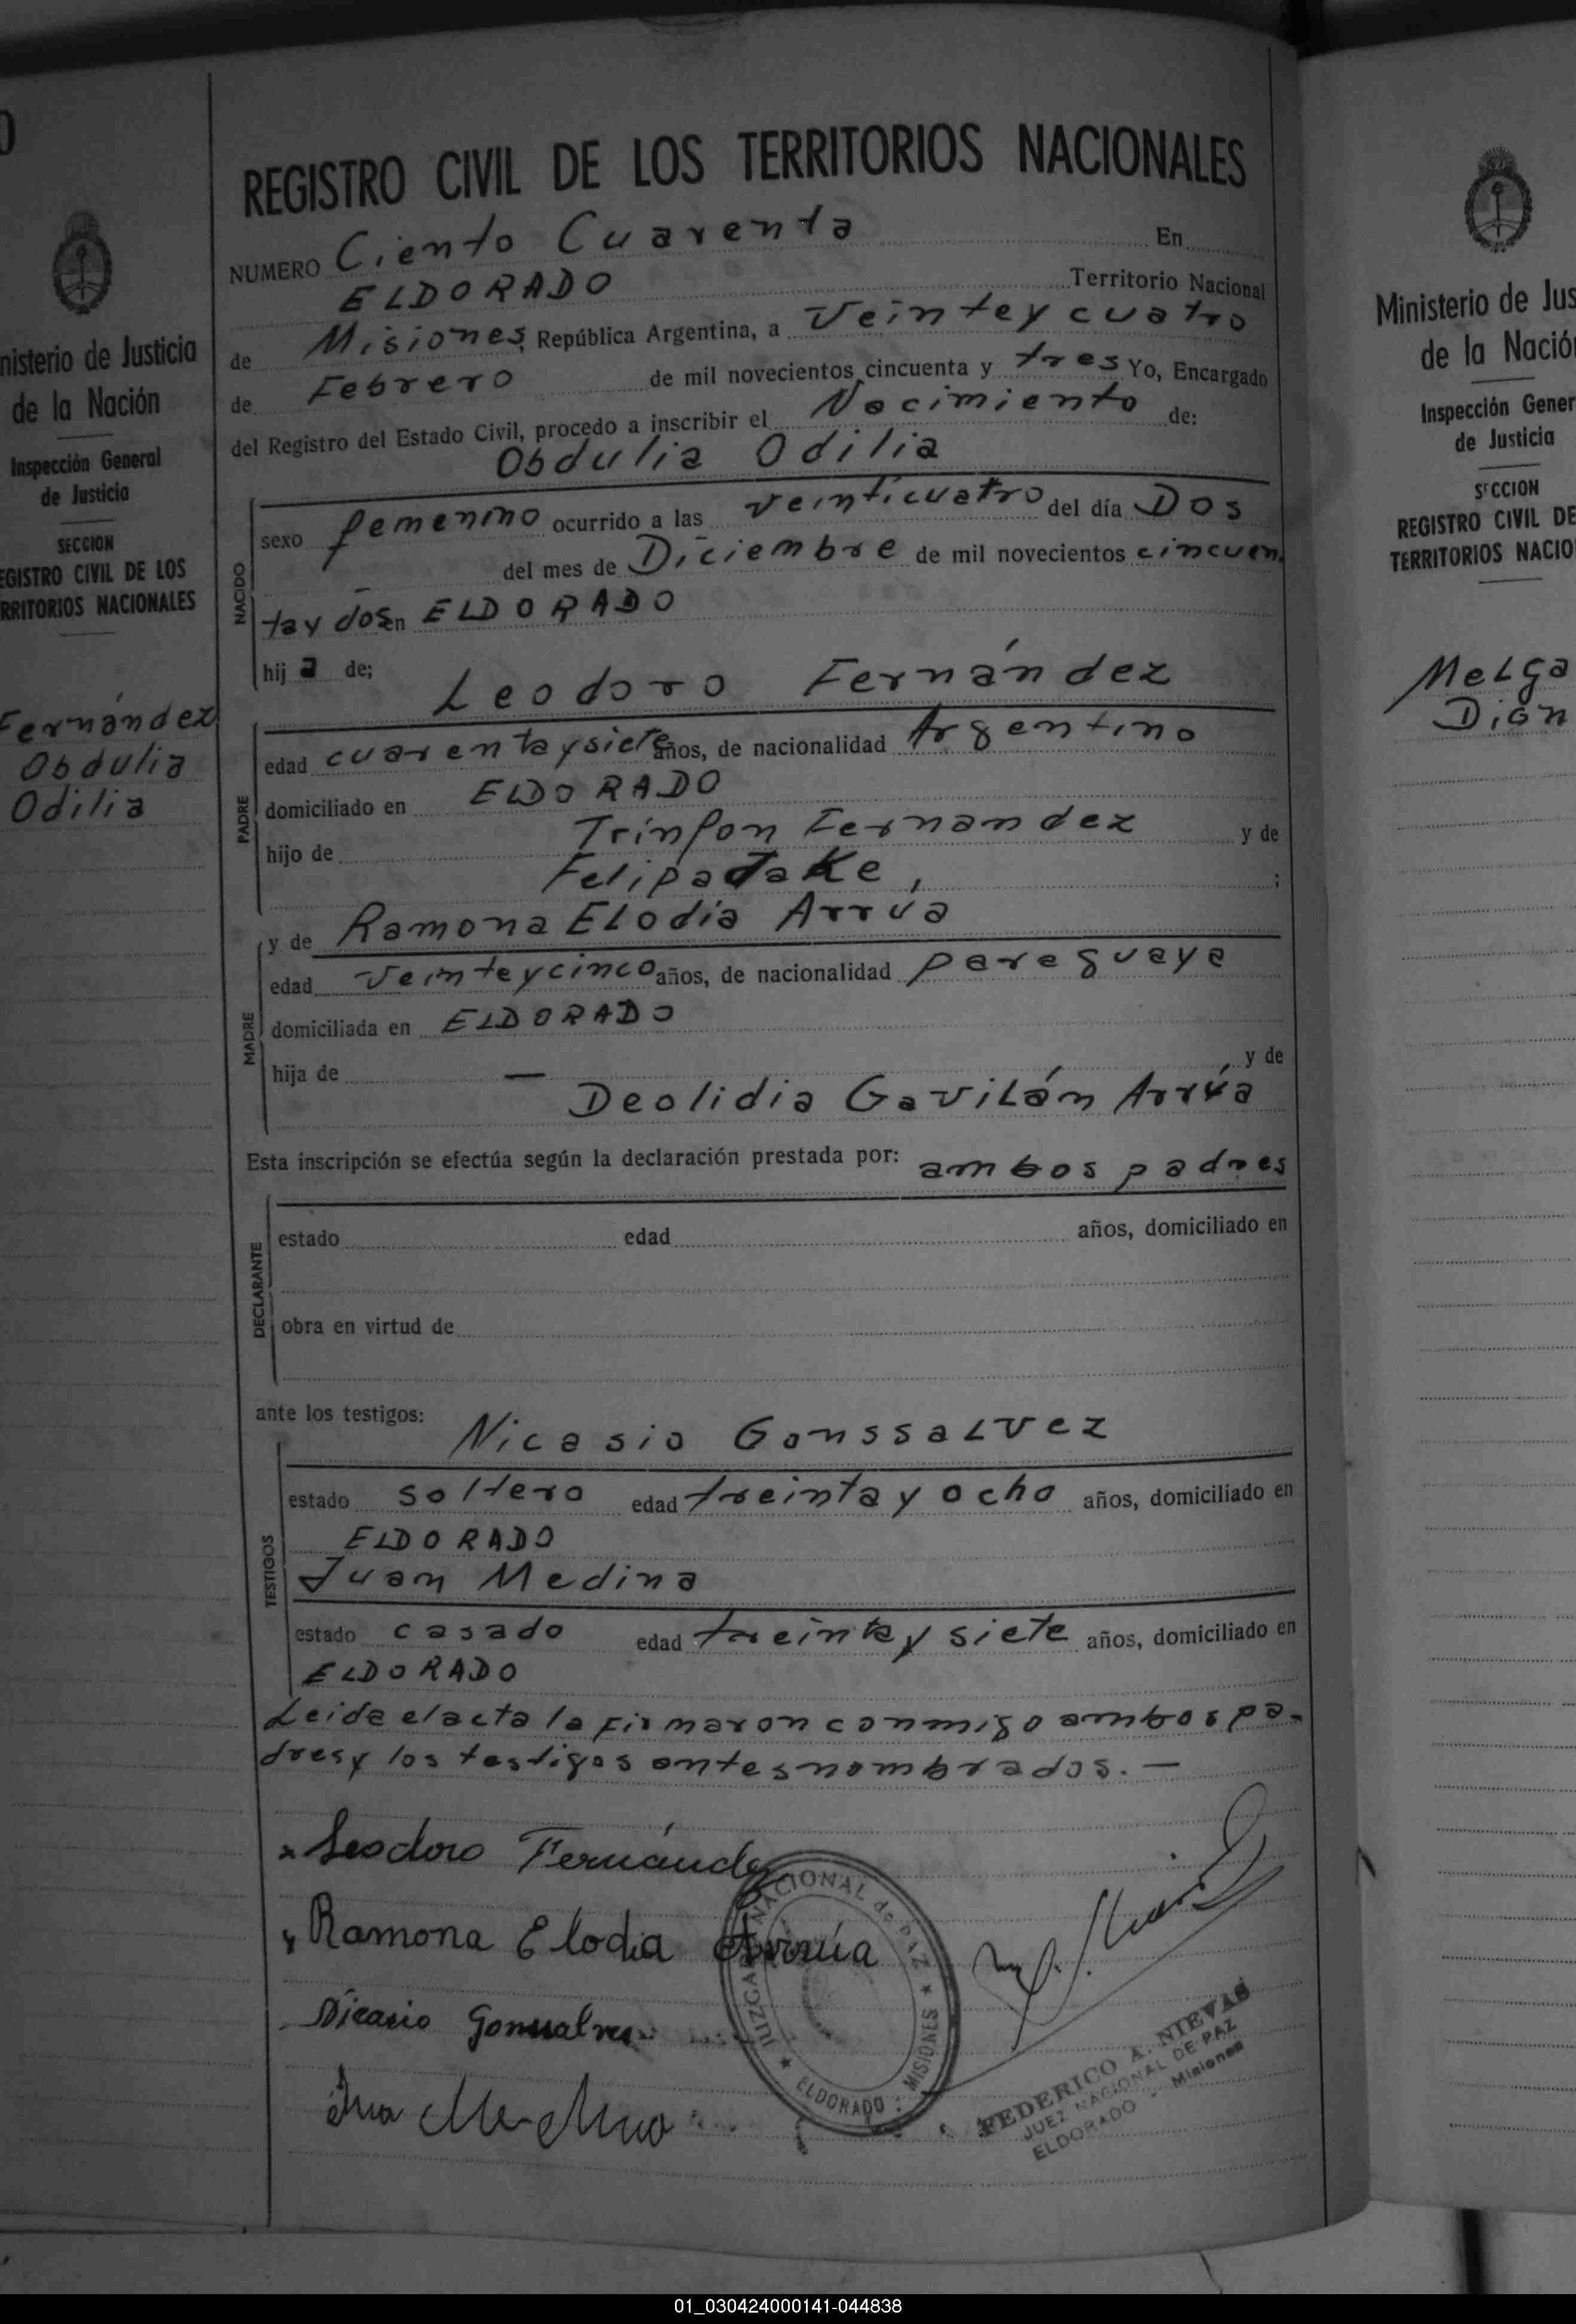 nisterio de Justicia
de la Nación
Inspección General
de Justicia
SECCION
EGISTRO CIVIL DE LOS
RRITORIOS NACIONALES
Fernández
Obdulia
Odilia
REGISTRO CIVIL DE LOS TERRITORIOS NACIONALES
NUMERO Ciento Cuarenta En
ELDORADO Territorio Nacional
de Misiones, República Argentina, a Veintey cuatro
de Febrero de mil novecientos cincuenta y tres Yo, Encargado
del Registro del Estado Civil, procedo a inscribir el Nacimiento de:
Obdulia Odilia
NACIDO
sexo femenino ocurrido a las veinticuatro del día Dos
— del mes de Diciembre de mil novecientos cincuen
tay dos en ELDORADO
hija de;
Leodoro Fernández
PADRE
edad cuarentaysiete años, de nacionalidad Argentino
domiciliado en ELDORADO
hijo de Trinfon Fernandez y de
Felipa Jake, ;
MADRE
y de Ramona Elodia Arrúa
edad Veinteycinco años, de nacionalidad paraguaya
domiciliada en ELDORADO
hija de — y de
Deolidia Gavilán Arrúa
Esta inscripción se efectúa según la declaración prestada por: ambos padres
DECLARANTE
estado edad años, domiciliado en
obra en virtud de
ante los testigos:
Nicasio Gonssalvez
TESTIGOS
estado soltero edad treinta y ocho años, domiciliado en
ELDORADO
Juan Medina
estado casado edad treinta y siete años, domiciliado en
ELDORADO
Leida el acta la firmaron conmigo ambos pa-
dres y los testigos antes nombrados. —
x Leodoro Fernández
x Ramona Elodia Arrúa
Nicasio Gonssalves
Medina
JUZGADO NACIONAL de PAZ
★ ELDORADO : MISIONES ★
FEDERICO A. NIEVAS
JUEZ NACIONAL DE PAZ
ELDORADO - Misiones
Ministerio de Jus
de la Nació
Inspección Gener
de Justicia
SECCION
REGISTRO CIVIL DE
TERRITORIOS NACIO
Melga
Dion
01_030424000141-044838